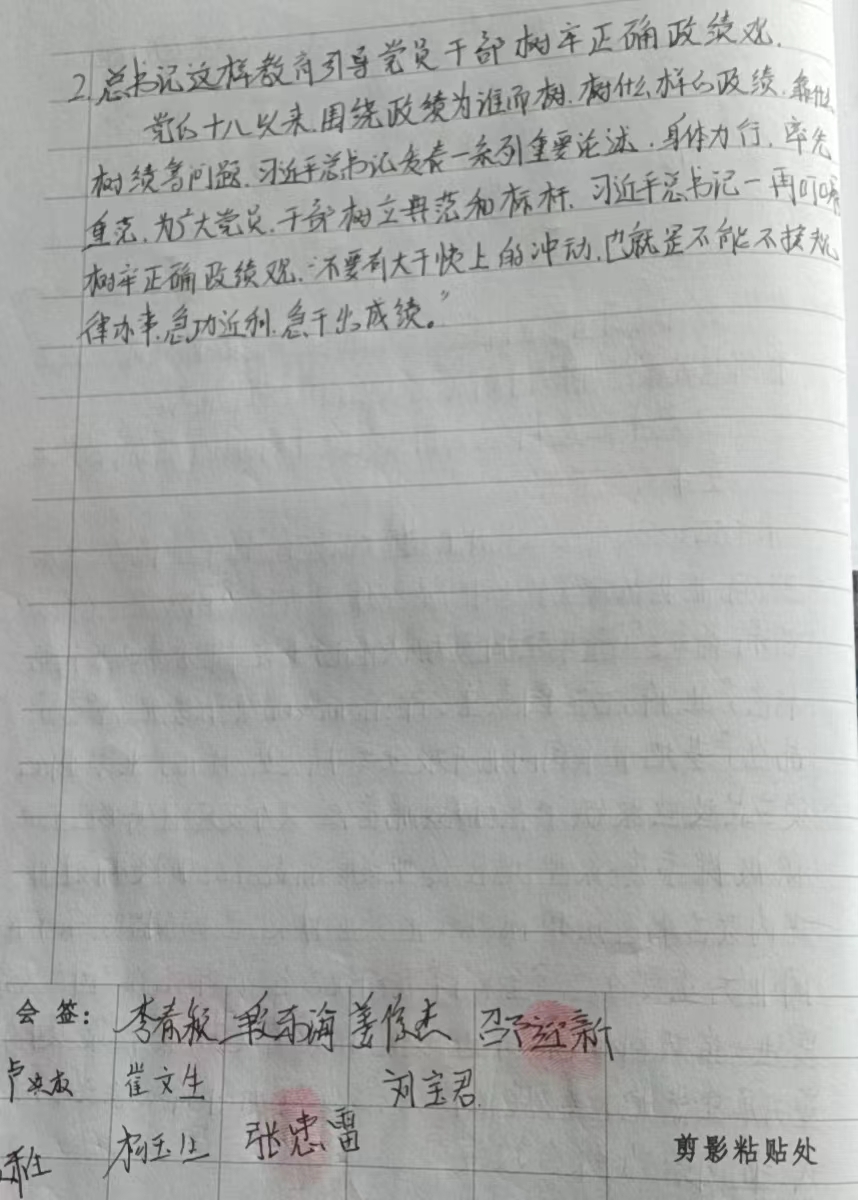 2. 总书记这样教育引导党员干部树牢正确政绩观.
党的十八以来.围绕政绩为谁而树.树什么样的政绩.靠什么
树绩等问题.习近平总书记发表一系列重要论述.身体力行.率先
垂范.为广大党员.干部树立典范和标杆.习近平总书记一再叮嘱
树牢正确政绩观.“不要有大干快上的冲动.也就是不能不按规
律办事.急功近利.急于出成绩。”
会 签: 李春毓 殷东海 姜俊杰 邵迎新
崔文生 刘宝君
张忠雷
剪影粘贴处